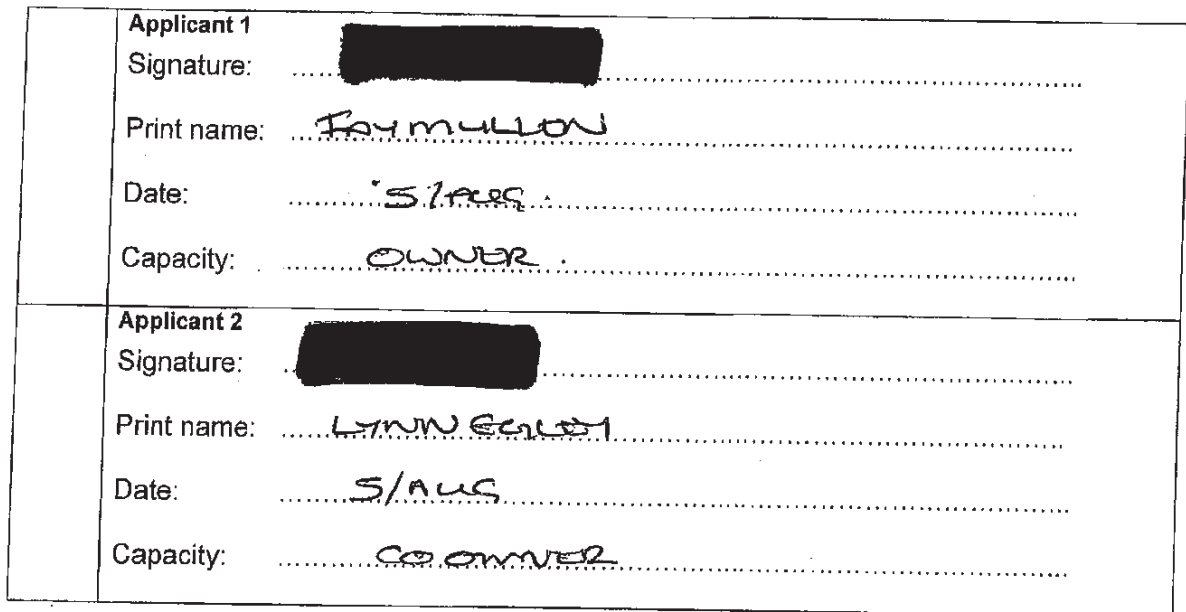 Applicant 1
Signature:
Print name: MULLON
Date: 5/AUG.
Capacity: OWNER.
Applicant 2
Signature:
Print name: LYNN
Date: 5/AUG
Capacity: CO OWNER